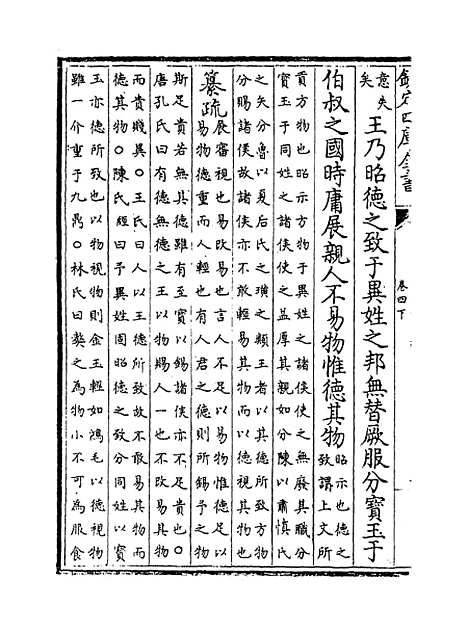 欽定四庫全書
卷四下
意失
矣
王乃昭德之致于異姓之邦無替厥服分寶玉于
伯叔之國時庸展親人不易物惟德其物
昭示也德之
致謂上文所
貢方物也昭示方物于異姓之諸侯使之無廢其職分
寶玉于同姓之諸侯使之益厚其親如分陳以肅慎氏
之矢分魯以夏后氏之璜之類王者以其德所致方物
分賜諸侯故諸侯亦不敢輕易其物而以德視其物也
纂疏
展審視也易改易也言人不足以易物惟德足以
易物德重而人輕也有人君之德則所錫予之物
斯足貴若無其德雖有至寳以錫諸侯亦不足貴也○
唐孔氏曰有德無德之王以物賜人一也不改易其物
而貴賤異○王氏曰人以王德所致故不敢易其物而
德其物○陳氏經曰予異姓固昭德之致分同姓以寳
玉亦德所致也以物視物則金玉輕如鴻毛以德視物
雖一介重于九鼎○林氏曰獒之為物小不可為服食